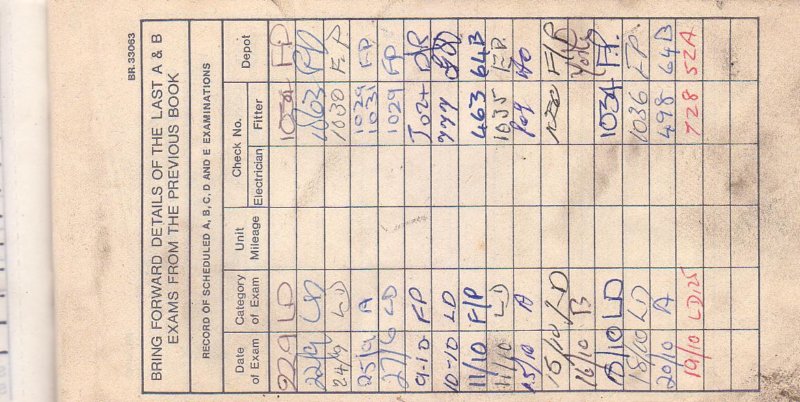 BR.33063
BRING FORWARD DETAILS OF THE LAST A & B
EXAMS FROM THE PREVIOUS BOOK
RECORD OF SCHEDULED A, B, C, D AND E EXAMINATIONS
Date of Exam Category of Exam Unit Mileage Check No. Electrician Fitter Depot
22/9 LD 1034 FP
22/9 LD 1003
24/9 LD 1030 FP
25/9 A 1029 1031 FP
27/6 LD 1029 FP
9-10 FP
10-10 LD 777
11/10 F/P 463 64B
11/10 LD 1035 FP
15/10 A
15/10 LD F/P
16/10 B
18/10 LD 1034 FP
18/10 LD 1036 FP
20/10 A 498 64B
19/10 LD125 728 52A